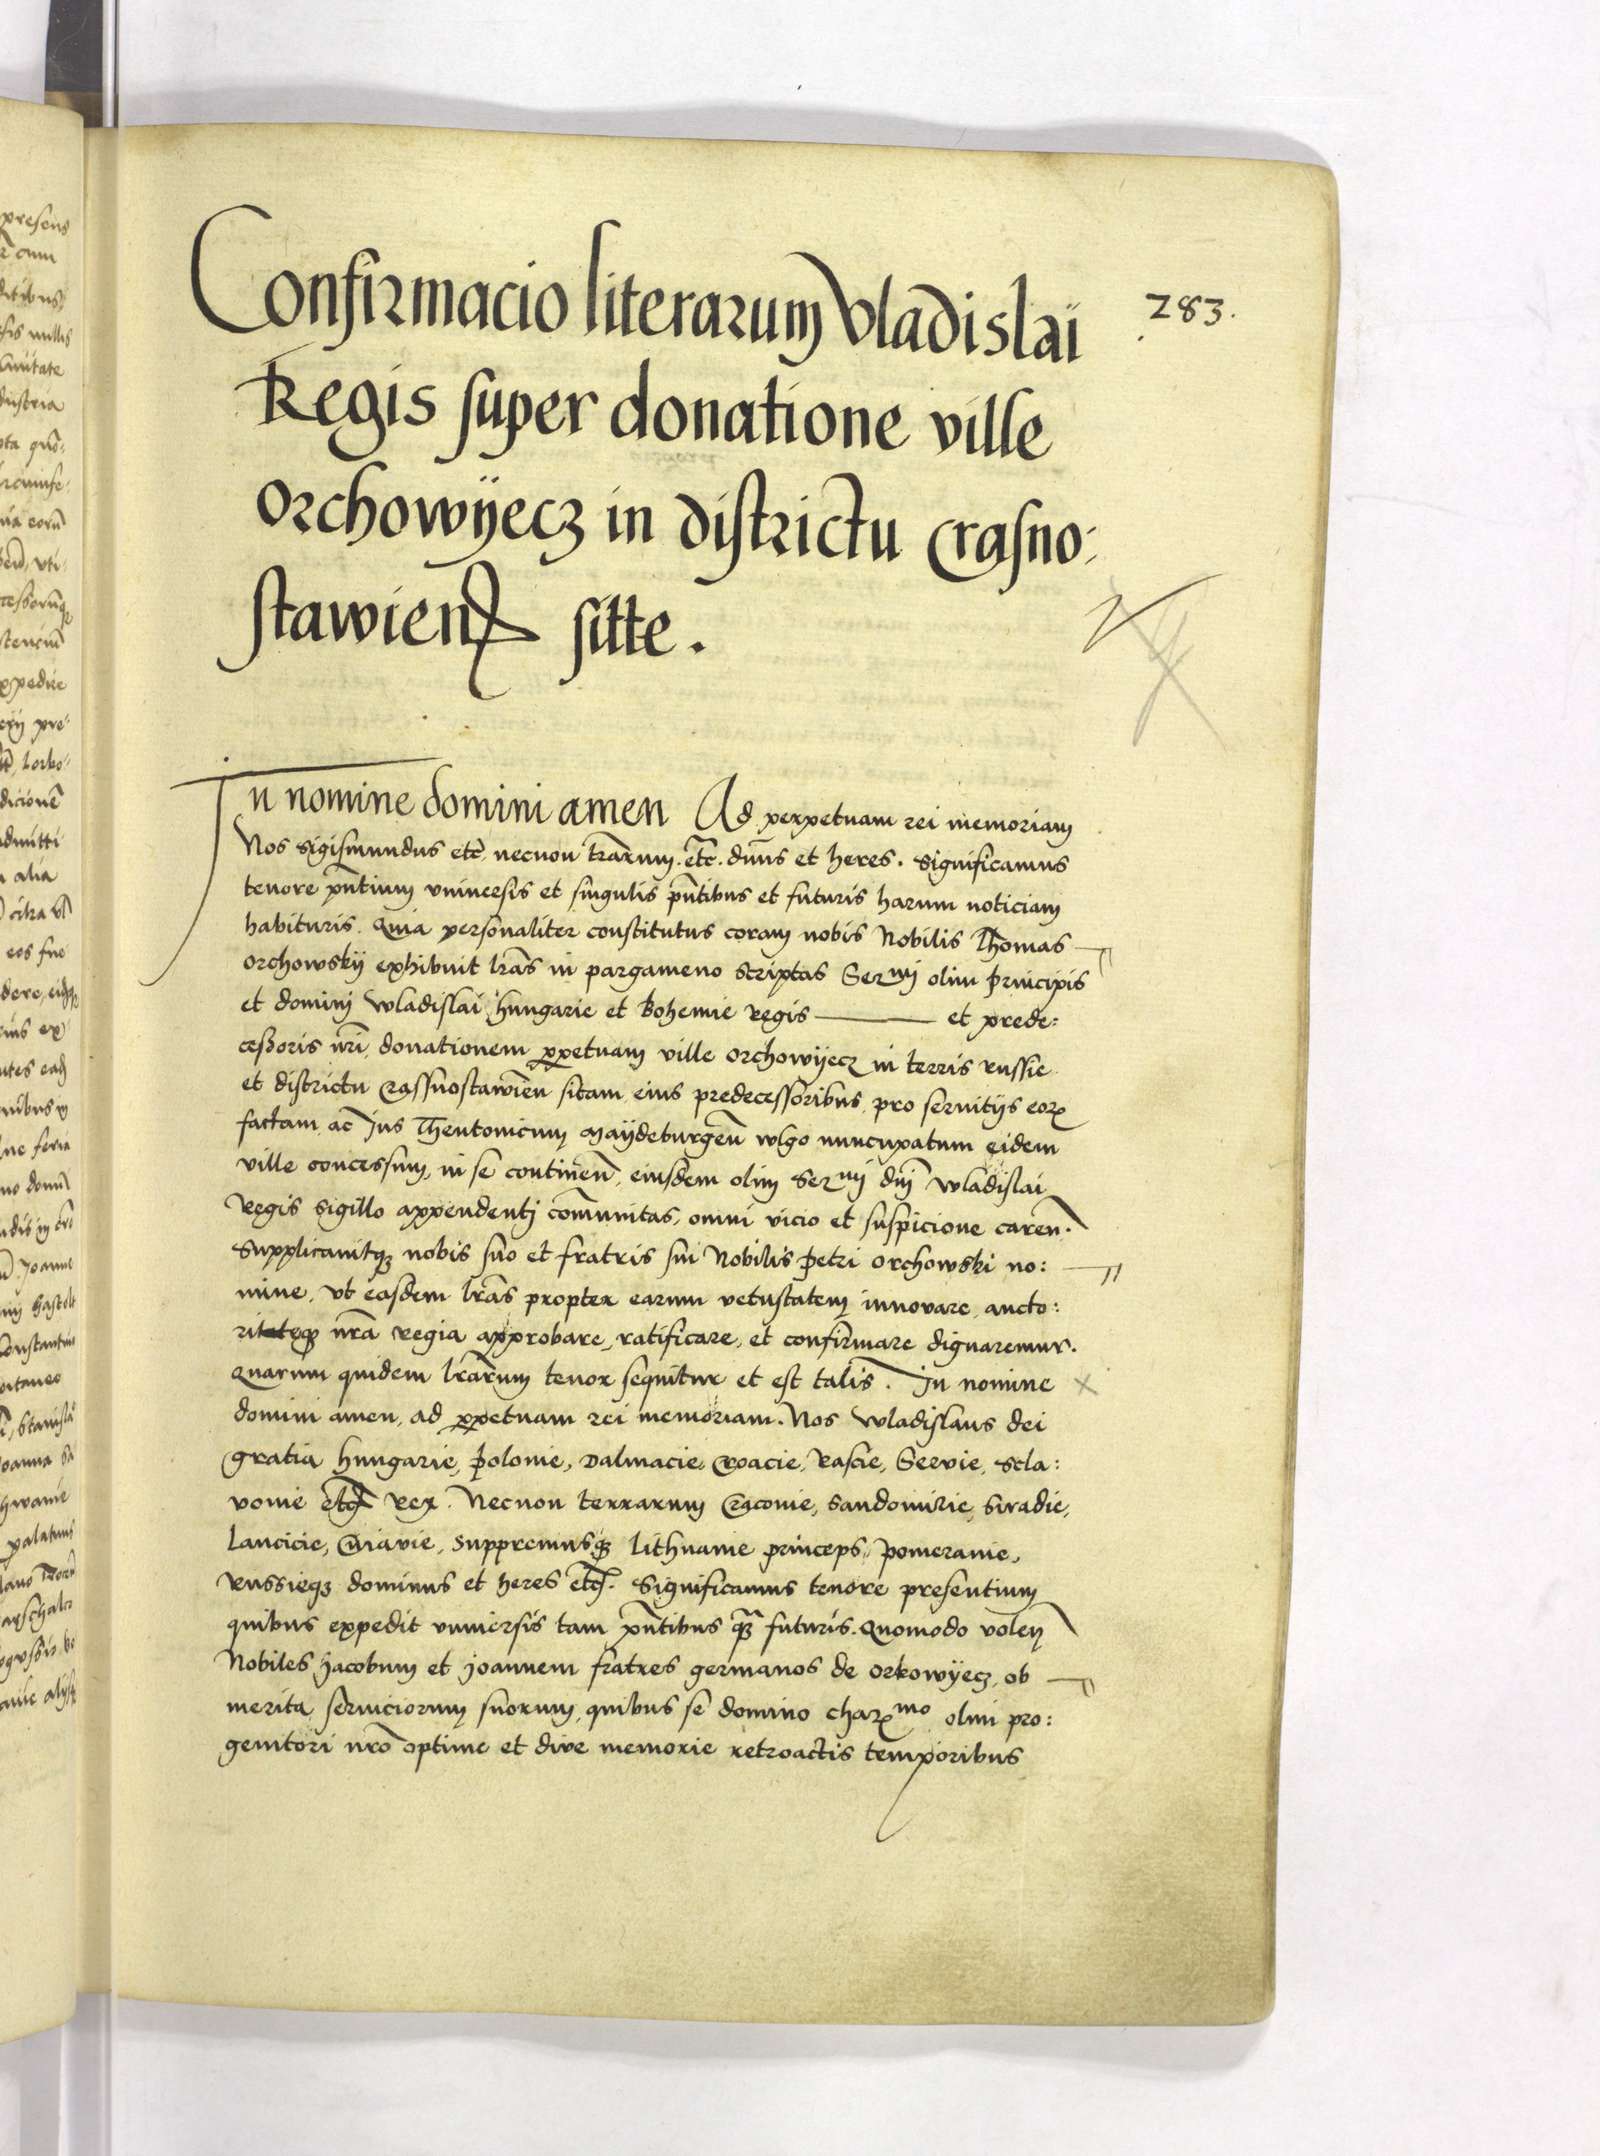 Confirmacio literarum Vladislai
283.
Regis super donatione ville
Orchowÿecz in districtu Crasno:
stawien sitte.
In nomine domini amen Ad perpetuam rei memoriam
Nos Sigismundus etc̄ necnon tr̄arum. etc̄. dn̄us et heres. Significamus
tenore pn̄tium vniuersis et singulis pn̄tibus et futuris harum noticiam
habituris. Quia personaliter constitutus coram nobis Nobilis Thomas
Orchowskÿ exhibuit lr̄as in pargameno scriptas Ser^mi olim principis
et domini Wladislai Hungarie et Bohemie Regis et prede:
cessoris nr̄i, donationem ꝑpetuam ville Orchowÿecz in terris Russie
et districtu Crassnostawien̄ sitam eius predecessoribus pro seruitijs eorꝫ
factam ac Jus Theutonicum Maÿdeburgen̄ wlgo nuncupatum eidem
ville concessum, in se continen̄, eiusdem olim Ser^mi dn̄i Wladislai
Regis sigillo appendenti com̄unitas, omni vicio et suspicione caren.
Supplicauitqꝫ nobis suo et fratris sui Nobilis Petri Orchowski no:
mine, vt easdem lr̄as propter earum vetustatem innovare aucto:
ritateqꝫ nr̄a regia approbare, ratificare, et confirmare dignaremur.
Quarum quidem lr̄arum tenor sequitur et est talis. In nomine
domini amen, ad ꝑpetuam rei memoriam. Nos Wladislaus dei
gratia Hungarie, Polonie, Dalmacie Croacie, Rascie, Servie, Scla:
vonie etc̄ Rex. Necnon terrarum Craconie, Sandomirie, Siradie,
Lancicie, Cuiavie, Suppremusqꝫ Lithuanie princeps, Pomeranie,
Russieqꝫ dominus et heres etc̄. Significamus tenore presentium
quibus expedit vniuersis tam pn̄tibus qꝫ̄ futuris. Quomodo volen
Nobiles Jacobum et Joannem fratres germanos de Orkowÿecz, ob
merita seruiciorum suorum, quibus se domino charꝫ^mo olim pro:
genitori nr̄o optime et dive memorie retroactis temporibus